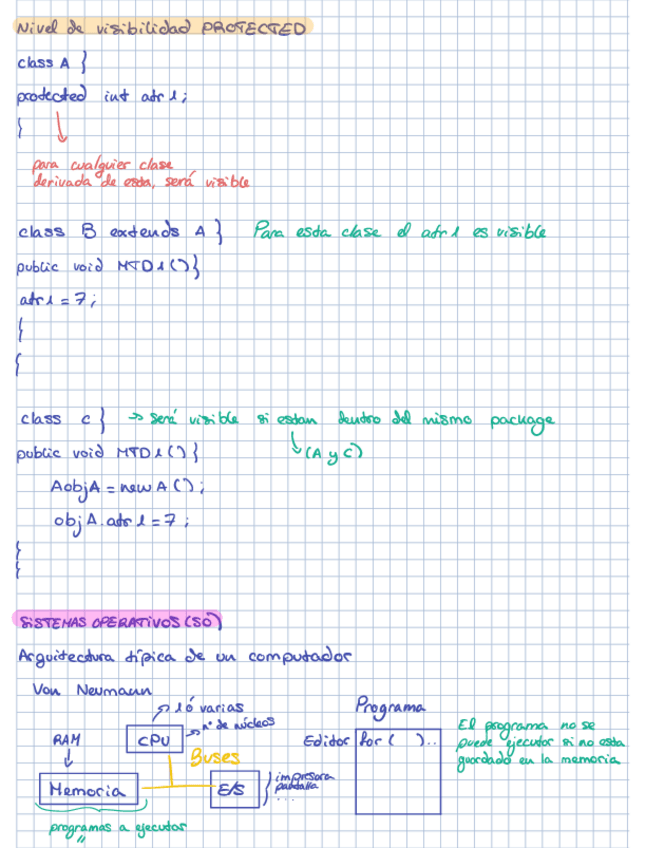 Nivel de visibilidad PROTECTED
class A }
protected int atr1;
}
para cualquier clase
derivada de esta, será visible
class B extends A } Para esta clase el atr1 es visible
public void MTD1(){
atr1 = 7;
{
{
class C } → será visible si estan dentro del mismo package
public void MTD1(){ (A y C)
AobjA = new A();
objA.atr1 = 7;
}
}
SISTEMAS OPERATIVOS (SO)
Arquitectura típica de un computador
Von Neumann
1 ó varias
nº de núcleos
Programa
RAM
CPU
Editor for( )..
El programa no se
puede ejecutar si no esta
guardado en la memoria
Buses
Memoria
E/S
impresora
pantalla
...
programas a ejecutar
"